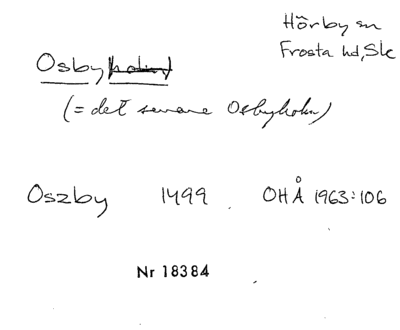 Hörby sn
Frosta hd, Sk
Osby
(= det senare Osbyholm)
Oszby 1499. OHÅ 1963:106
Nr 18384